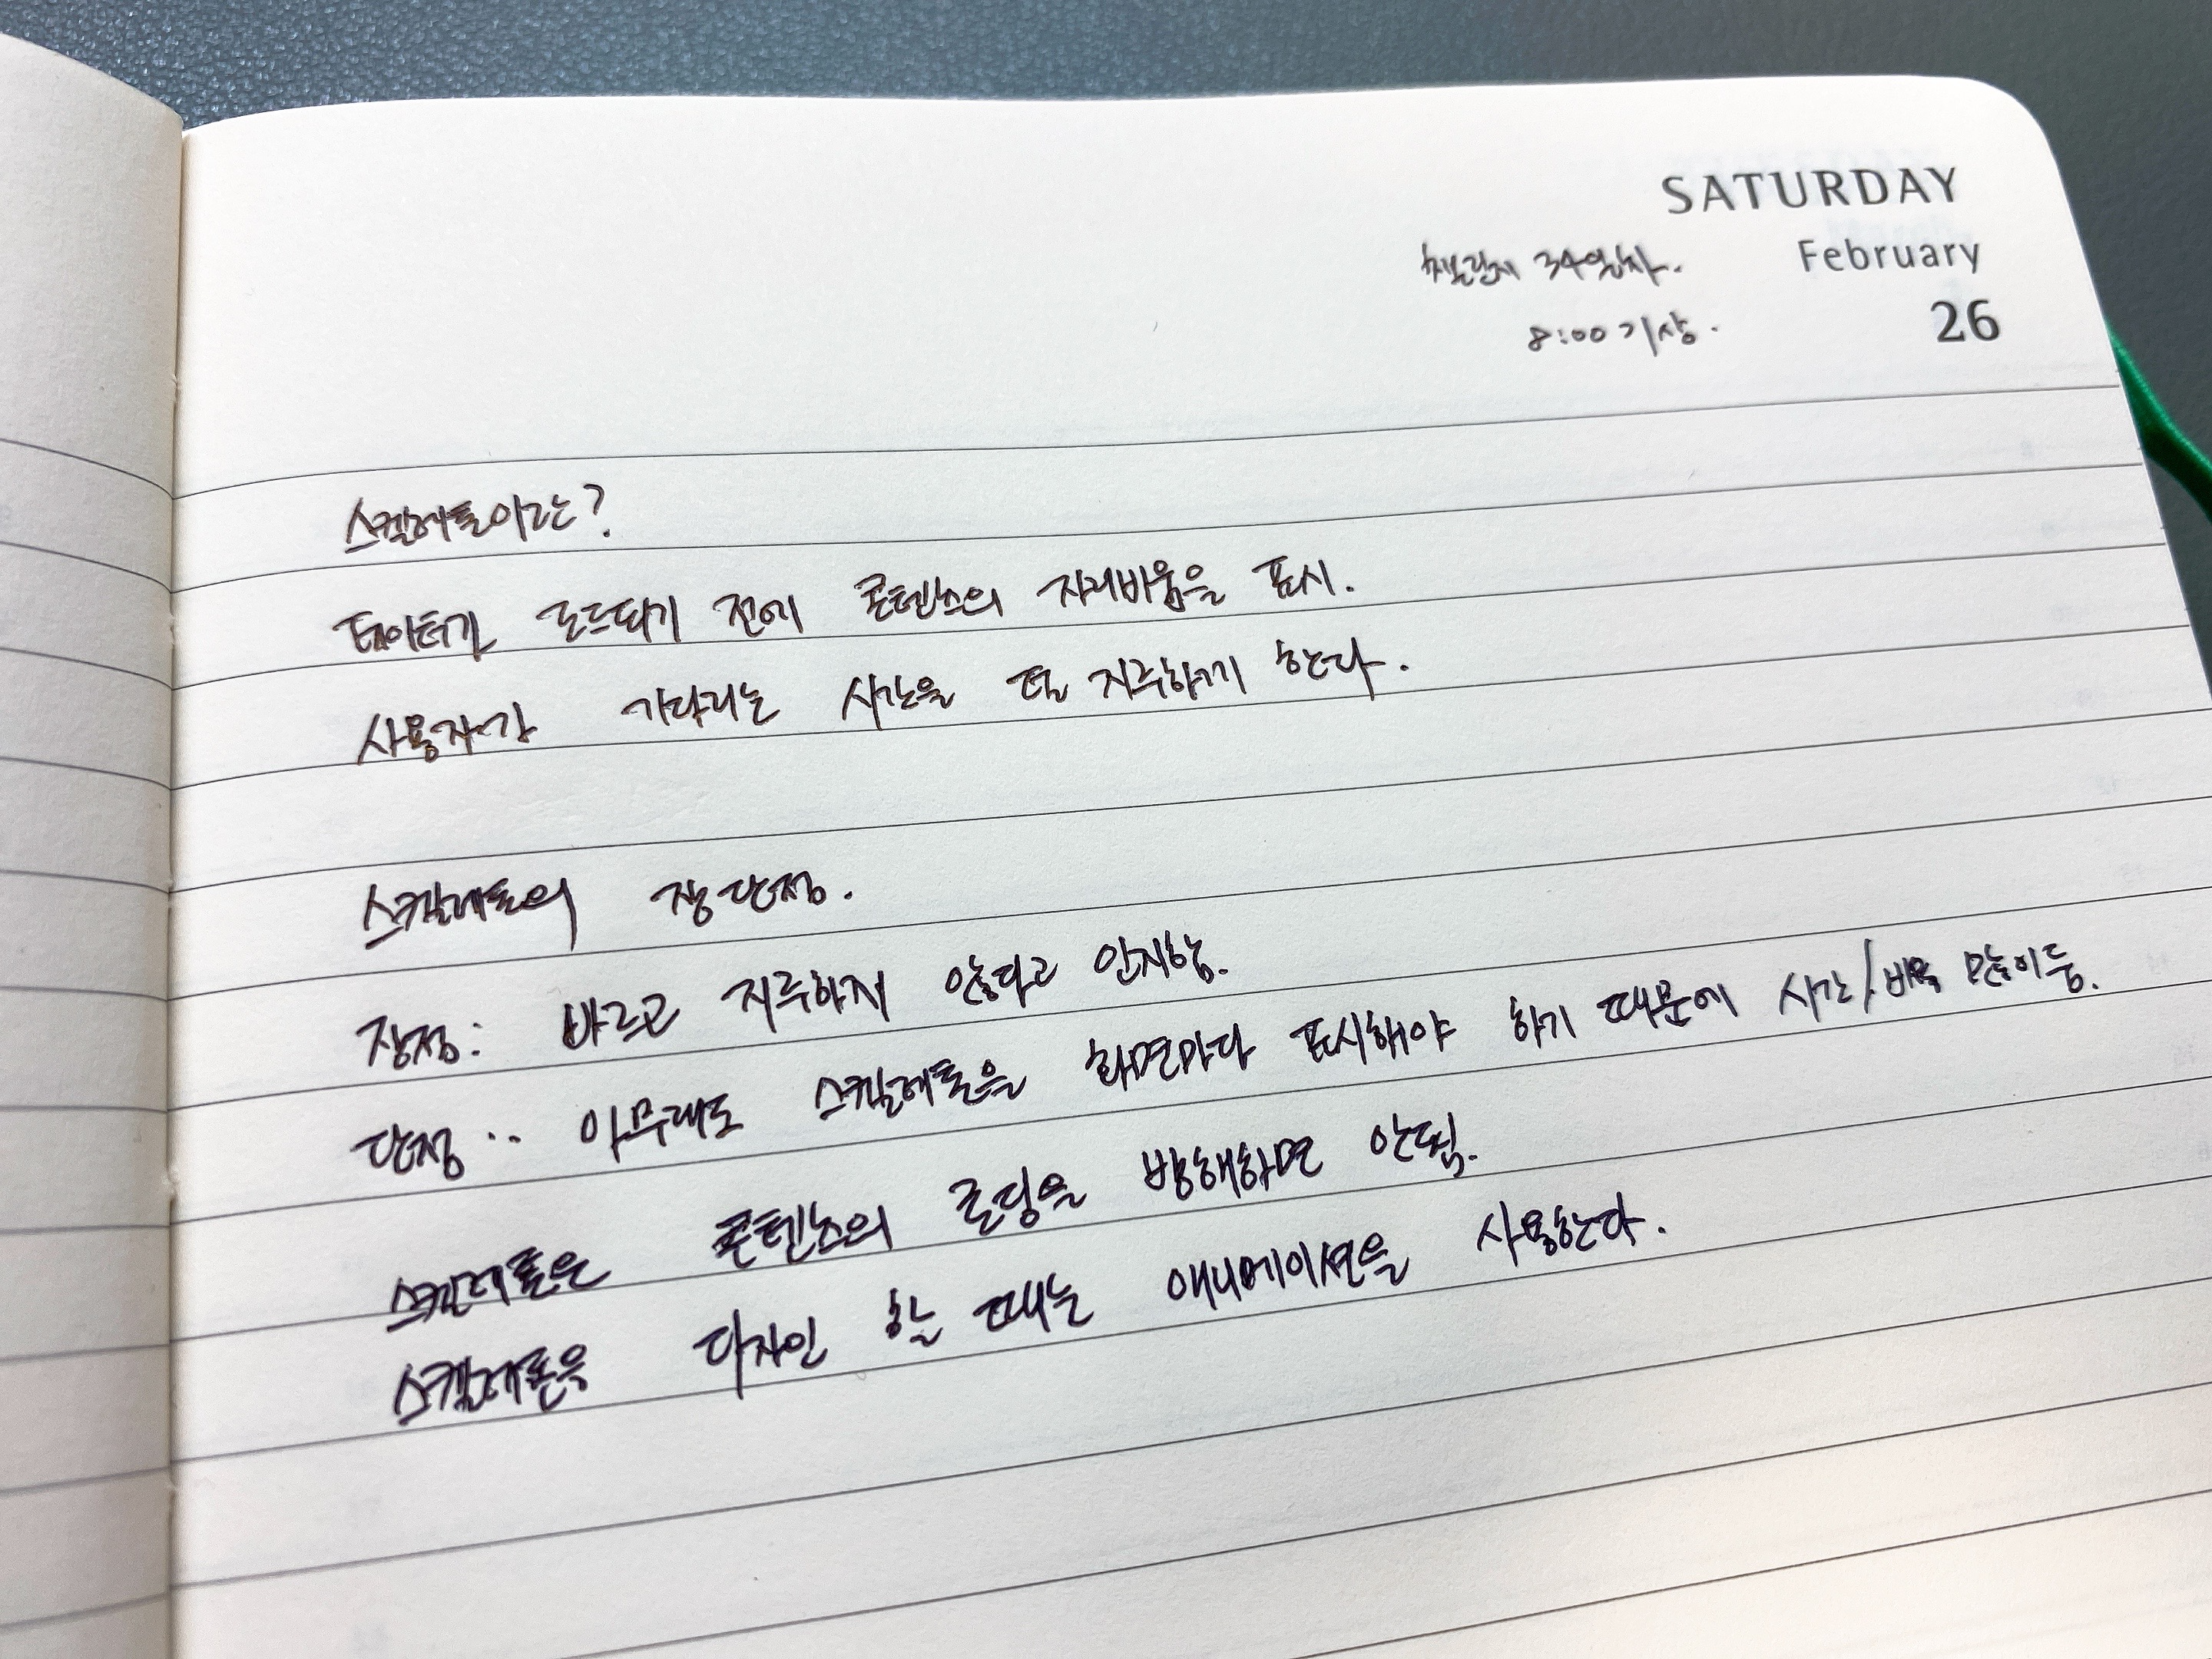 SATURDAY
챌린지 34일차. February
8:00 기상. 26
스켈레톤이란?
데이터가 로드되기 전에 콘텐츠의 자리비움을 표시.
사용자가 기다리는 시간을 덜 지루하게 한다.
스켈레톤의 장단점.
장점: 빠르고 지루하지 않다고 인지함.
단점 : 아무래도 스켈레톤을 화면마다 표시해야 하기 때문에 시간/비용 많이 듬.
스켈레톤은 콘텐츠의 로딩을 방해하면 안됨.
스켈레톤을 디자인 할 때는 애니메이션을 사용한다.